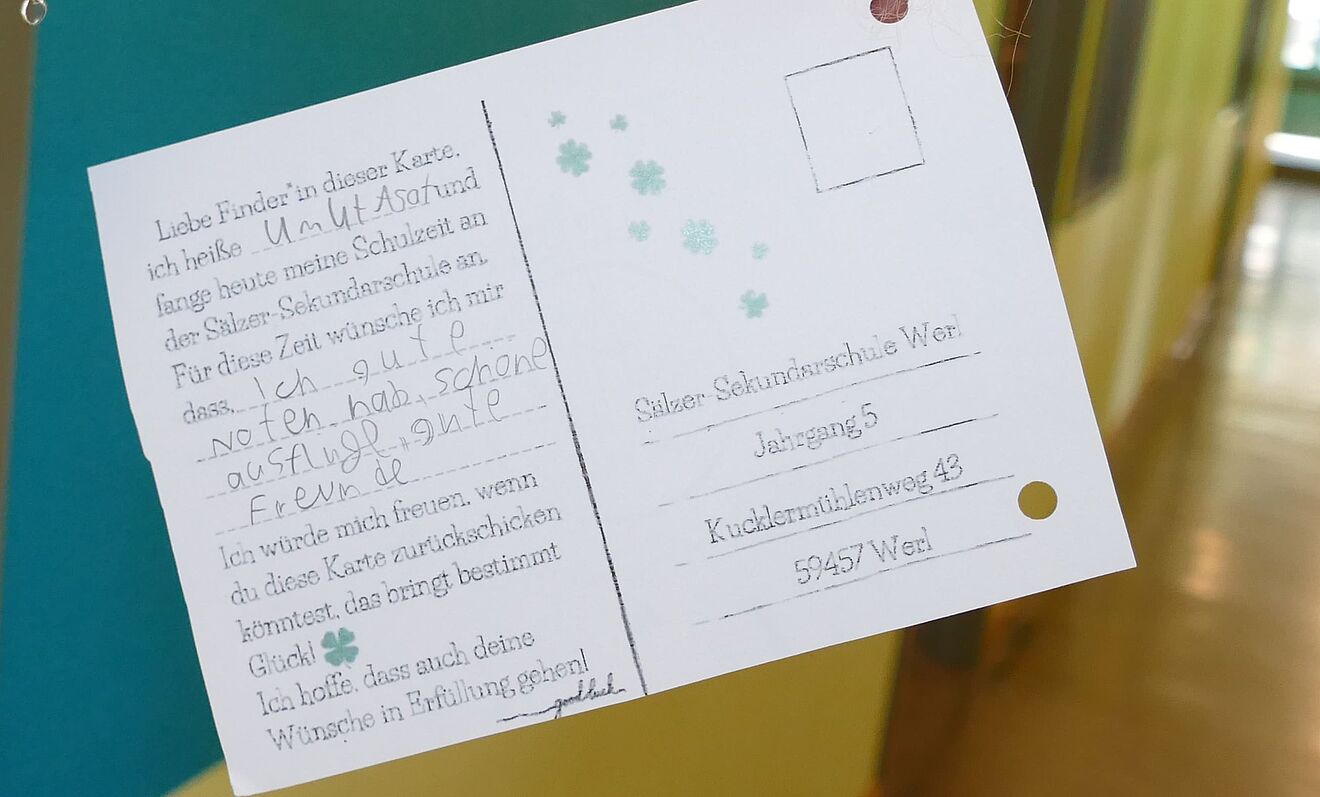 Liebe Finder*in dieser Karte,
ich heiße Umut Asaf und
fange heute meine Schulzeit an
der Sälzer-Sekundarschule an.
Für diese Zeit wünsche ich mir
dass, Ich gute
Noten hab, schöne
ausflüge + gute
Freunde
Ich würde mich freuen, wenn
du diese Karte zurückschicken
könntest, das bringt bestimmt
Glück!
Ich hoffe, dass auch deine
Wünsche in Erfüllung gehen!
good luck
Sälzer-Sekundarschule Werl
Jahrgang 5
Kucklermühlenweg 43
59457 Werl